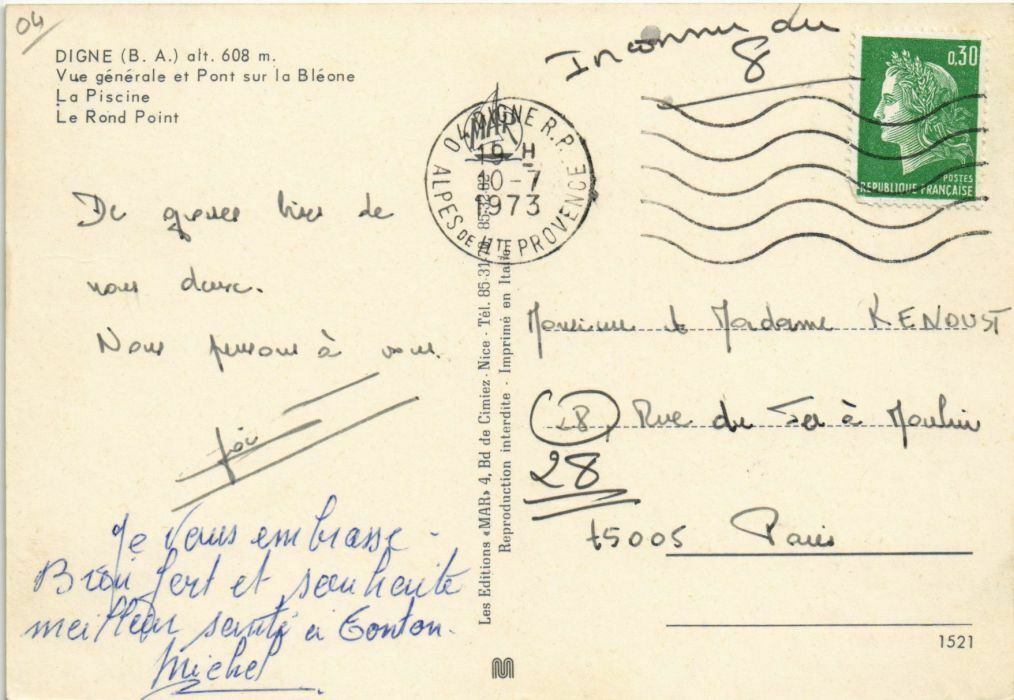 04
DIGNE (B. A.) alt. 608 m.
Vue générale et Pont sur la Bléone
La Piscine
Le Rond Point
Inconnu du
8
0,30
POSTES
REPUBLIQUE FRANÇAISE
04 DIGNE R.P.
MAR
19 H
10-7
1973
ALPES DE HTE PROVENCE
De grosses bises de
nous deux.
Nous pensons à vous.
Je vous embrasse
Bien fort et souhaite
meilleur santé à Tonton.
Michel
Les Editions «MAR» 4, Bd de Cimiez - Nice - Tél. 85-31-
Reproduction interdite - Imprimé en Italie
Monsieur & Madame KENOUST
28, Rue du Fer à Moulin
28
75005 Paris
1521